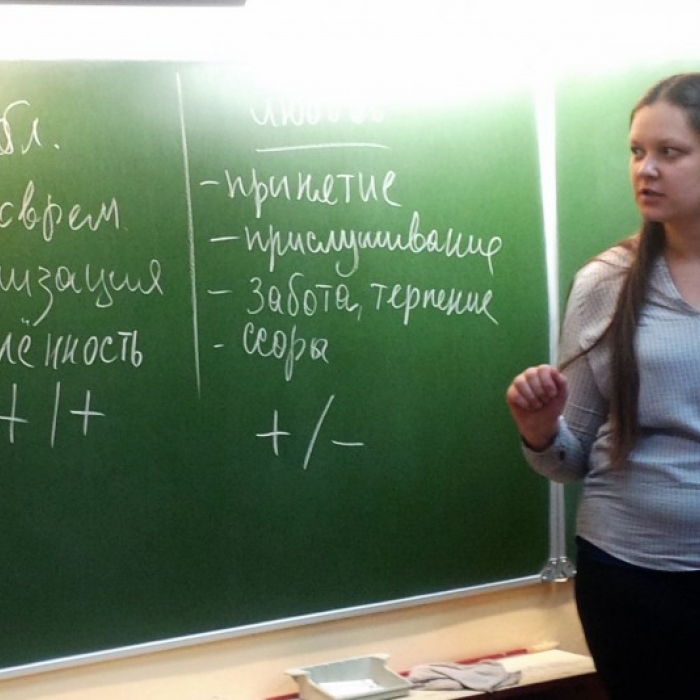 бл.
всё врем
изация
лённость
+/+
любовь
- принятие
- прислушивание
- забота, терпение
- ссоры
+/-